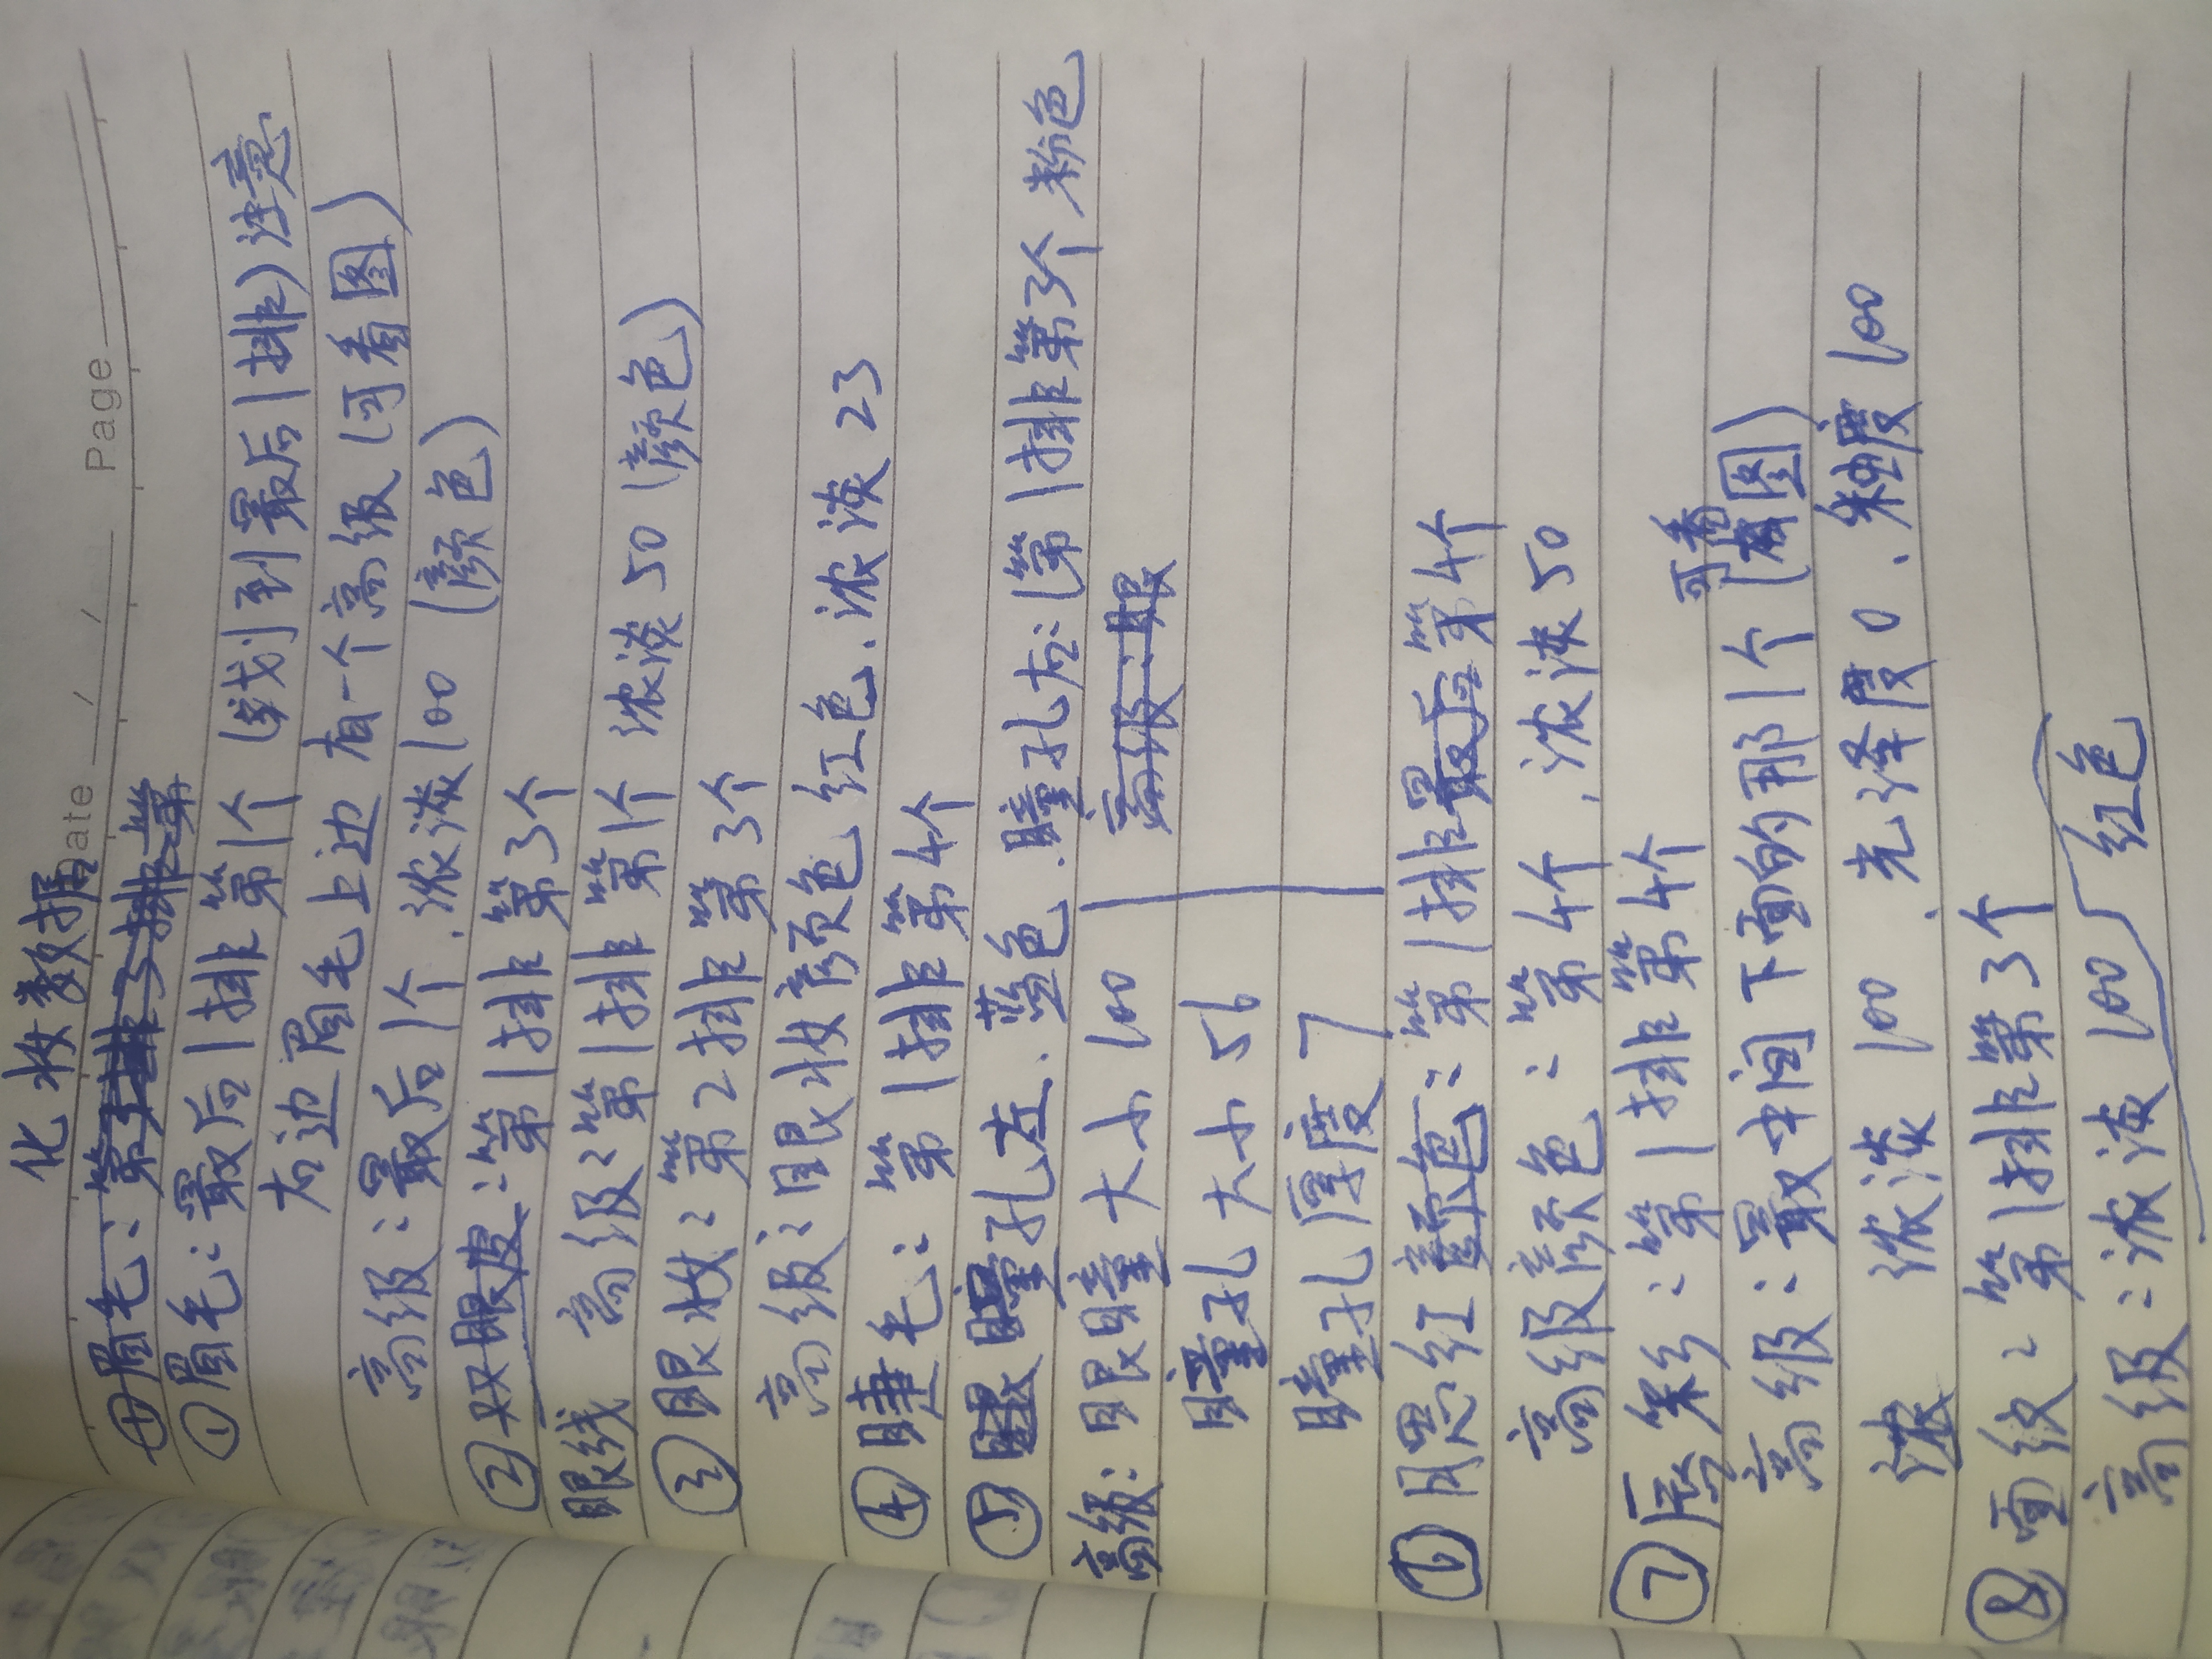 Date / / Page
化妆数据
①眉毛：最后1排第1个（划到最后1排）注意
右边眉毛上边有一个高级（可看图）
高级：最后1个，浓淡100（颜色）
②双眼皮：第1排第3个
眼线 高级：第1排第1个 浓淡50（颜色）
③眼妆：第2排第3个
高级：眼妆颜色红色，浓淡23
④睫毛：第1排第4个
⑤瞳孔左、蓝色，瞳孔右：（第1排第3个粉色
高级：眼瞳大小100
瞳孔大小56
瞳孔厚度7
⑥腮红：第1排最后第4个
高级颜色：第4个，浓淡50
⑦唇彩：第1排第4个
高级：最中间下面的那1个（可看图）
浓淡100，光泽度0，糙度100
⑧面纹：第1排第3个
高级：浓淡100 红色